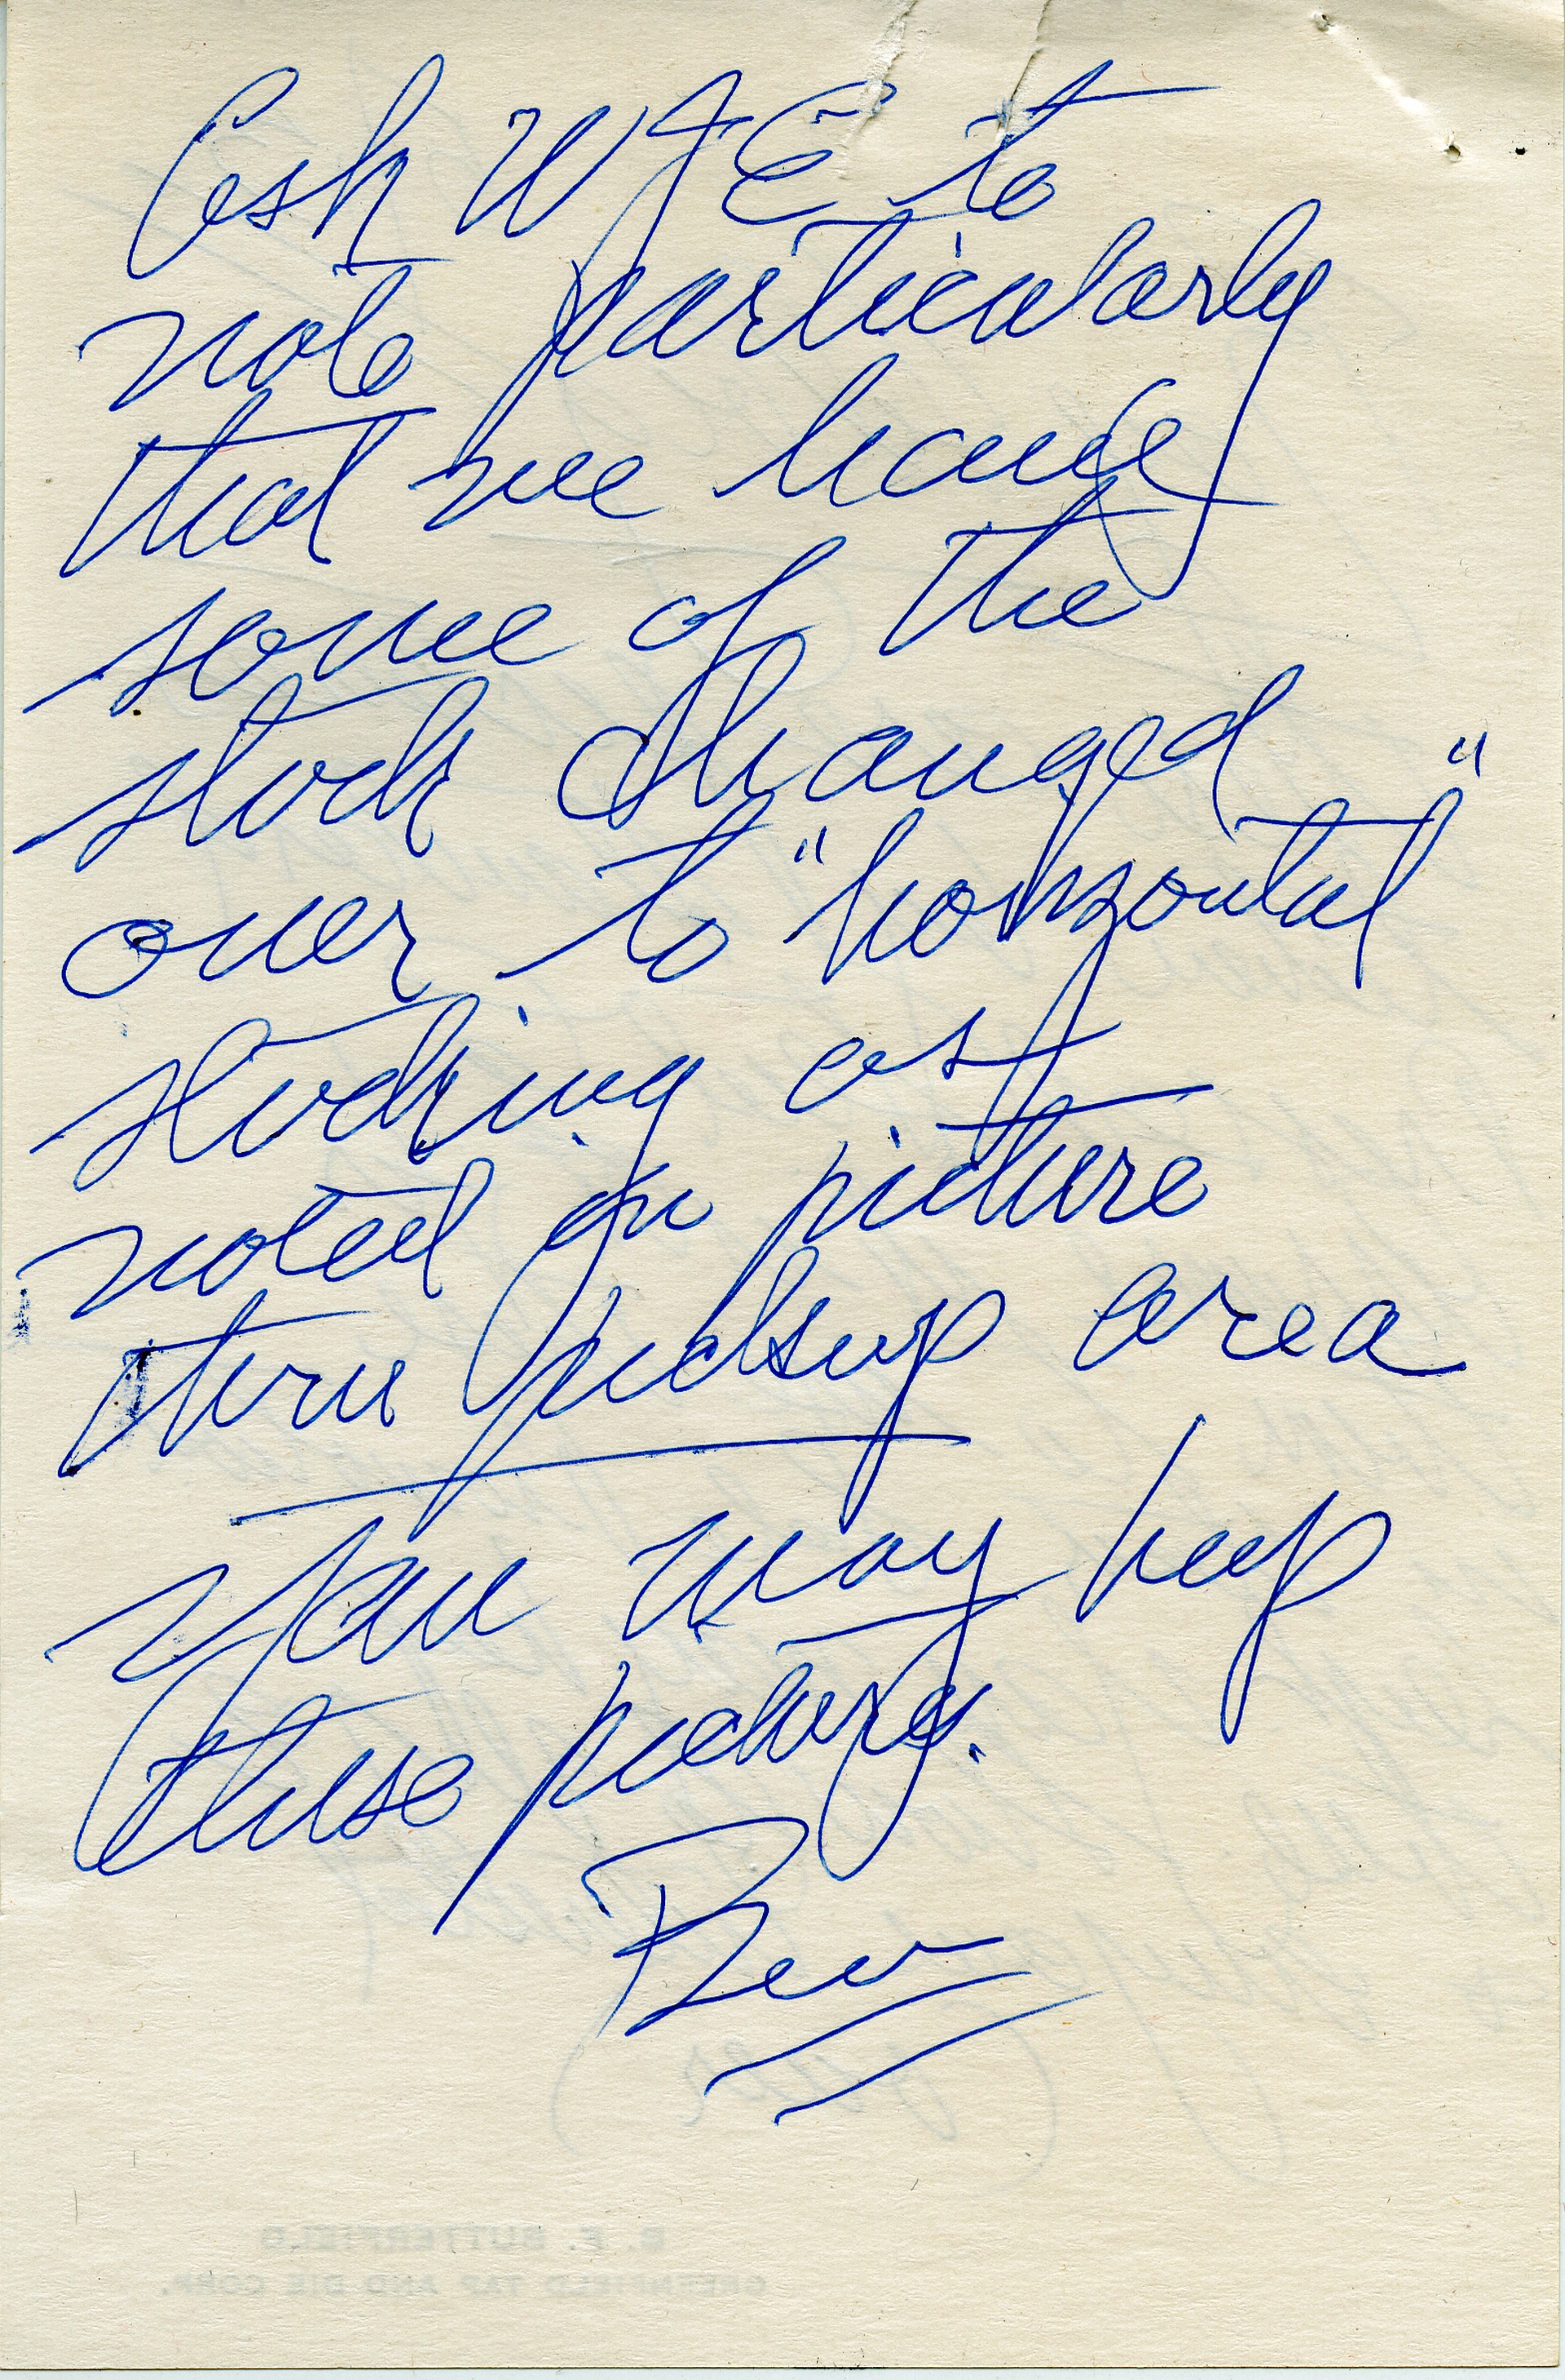 Ask WFE to
note particularly
that we have
some of the
stock changed
over to "horizontal"
stocking as
noted on picture
thru pickup area
You may keep
these pictures.
Bev
B. E. BUTTERFIELD
GREENFIELD TAP AND DIE CORP.